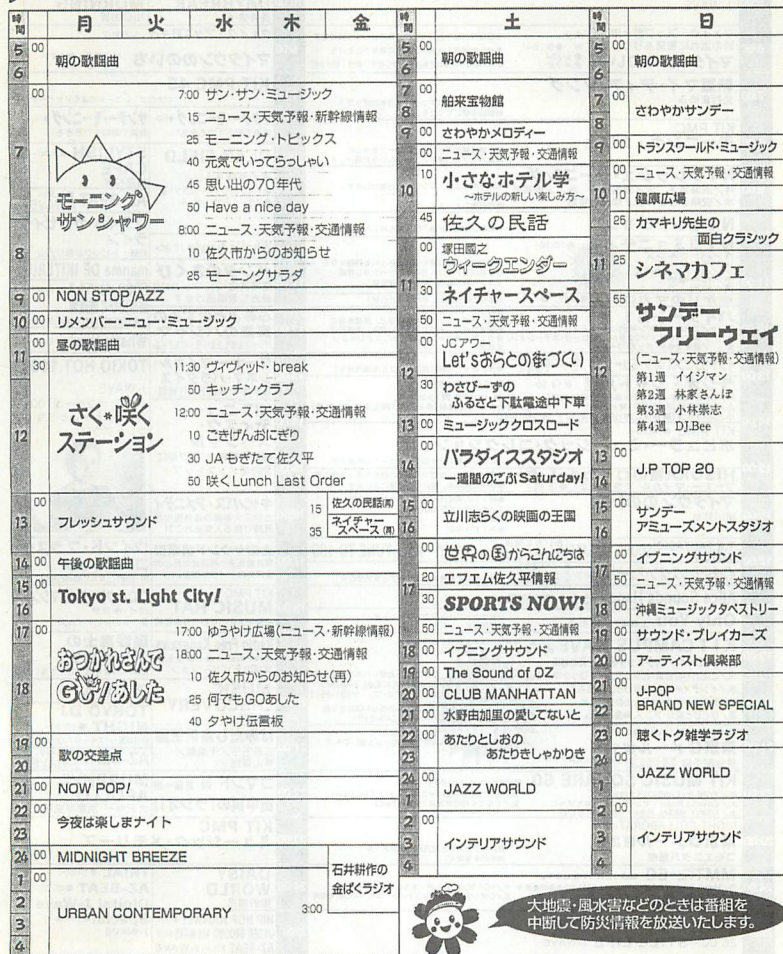 時間 月 火 水 木 金
5 00 朝の歌謡曲
6
7 00 モーニング
サンシャワー
7:00 サン・サン・ミュージック
15 ニュース・天気予報・新幹線情報
25 モーニング・トピックス
40 元気でいってらっしゃい
45 思い出の70年代
50 Have a nice day
8
8:00 ニュース・天気予報・交通情報
10 佐久市からのお知らせ
25 モーニングサラダ
9 00 NON STOP JAZZ
10 00 リメンバー・ニュー・ミュージック
11 00 昼の歌謡曲
30 さく*咲く
ステーション
11:30 ヴィヴィッド・break
50 キッチングラブ
12
12:00 ニュース・天気予報・交通情報
10 ごきげんおにぎり
30 JAもぎたて佐久平
50 咲くLunch Last Order
13 00 フレッシュサウンド
15 佐久の民話(再)
35 ネイチャー
スペース(再)
14 00 午後の歌謡曲
15 00 Tokyo st. Light City!
16
17 00 おつかれさんで
GU!あした
17:00 ゆうやけ広場(ニュース・新幹線情報)
18
18:00 ニュース・天気予報・交通情報
10 佐久市からのお知らせ(再)
25 何でもQあした
40 夕やけ伝言板
19 00 歌の交差点
20
21 00 NOW POP!
22 00 今夜は楽しまナイト
23
24 00 MIDNIGHT BREEZE
1 00 URBAN CONTEMPORARY
2
3
4
石井耕作の
金ぱくラジオ
3:00
時間 土
5 00 朝の歌謡曲
6
7 00 舶来宝物館
8
9 00 さわやかメロディー
10 00 ニュース・天気予報・交通情報
10 小さなホテル学
~ホテルの新しい楽しみ方~
45 佐久の民話
11 00 塚田國之
ウィークエンダー
30 ネイチャースペース
50 ニュース・天気予報・交通情報
12 00 JCアワー
Let'sおらとの街づくり
30 わさびーずの
ふるさと下駄電途中下車
13 00 ミュージッククロスロード
14 00 パラダイススタジオ
一週間のごぶSaturday!
15 00 立川志らくの映画の王国
16
17 00 世界の国からこんにちは
20 エフエム佐久平情報
30 SPORTS NOW!
50 ニュース・天気予報・交通情報
18 00 イブニングサウンド
19 00 The Sound of OZ
20 00 CLUB MANHATTAN
21 00 水野由加里の愛してないと
22 00 あたりとしおの
あたりきしゃかりき
23
24 00 JAZZ WORLD
1
2 00 インテリアサウンド
3
4
時間 日
5 00 朝の歌謡曲
6
7 00 さわやかサンデー
8
9 00 トランスワールド・ミュージック
10 00 ニュース・天気予報・交通情報
10 健康広場
25 カマキリ先生の
面白クラシック
11 25 シネマカフェ
55 サンデー
フリーウェイ
12
(ニュース・天気予報・交通情報)
第1週 イイジマン
第2週 林家さんぽ
第3週 小林崇志
第4週 DJ.Bee
13 00 J.P TOP 20
14
15 00 サンデー
アミューズメントスタジオ
16
17 00 イブニングサウンド
50 ニュース・天気予報・交通情報
18 00 沖縄ミュージックタペストリー
19 00 サウンド・ブレイカーズ
20 00 アーティスト倶楽部
21 00 J-POP
BRAND NEW SPECIAL
22
23 00 聴くトク雑学ラジオ
24 00 JAZZ WORLD
1
2 00 インテリアサウンド
3
4
大地震・風水害などのときは番組を
中断して防災情報を放送いたします。